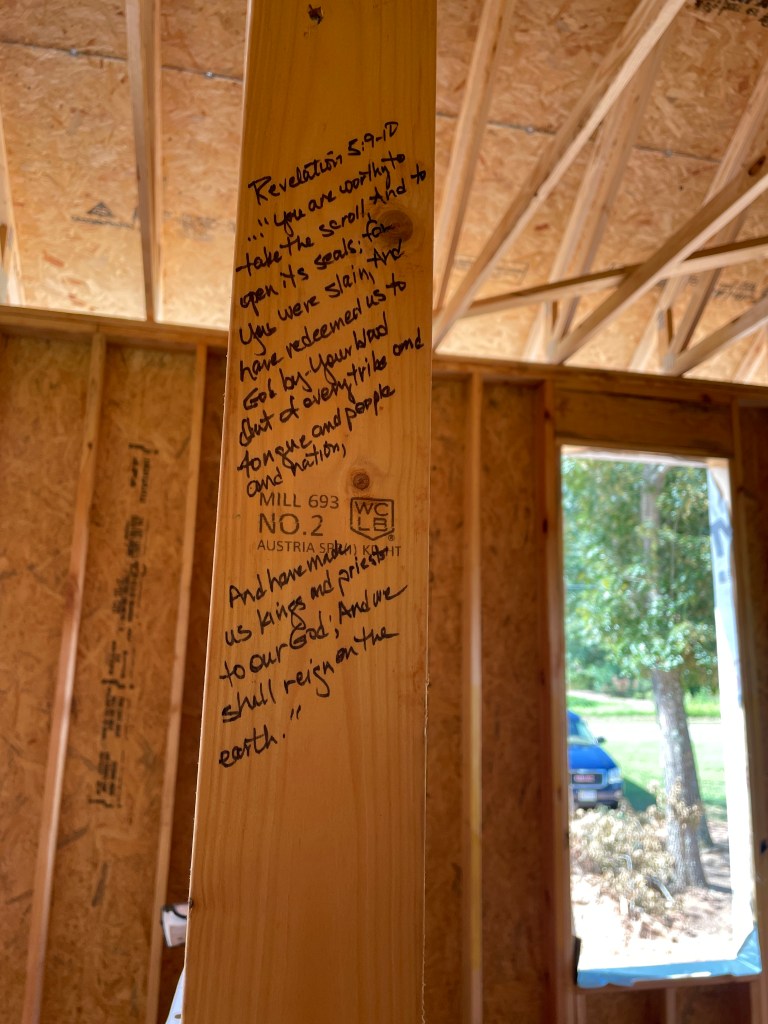 Revelation 5:9-10
..."You are worthy to
take the scroll, And to
open its seals; for
You were slain, And
have redeemed us to
God by Your blood
Out of every tribe and
tongue and people
and nation,
MILL 693
NO.2
WC
LB
®
AUSTRIA KD HT
And have made
us kings and priests
to our God; And we
shall reign on the
earth."